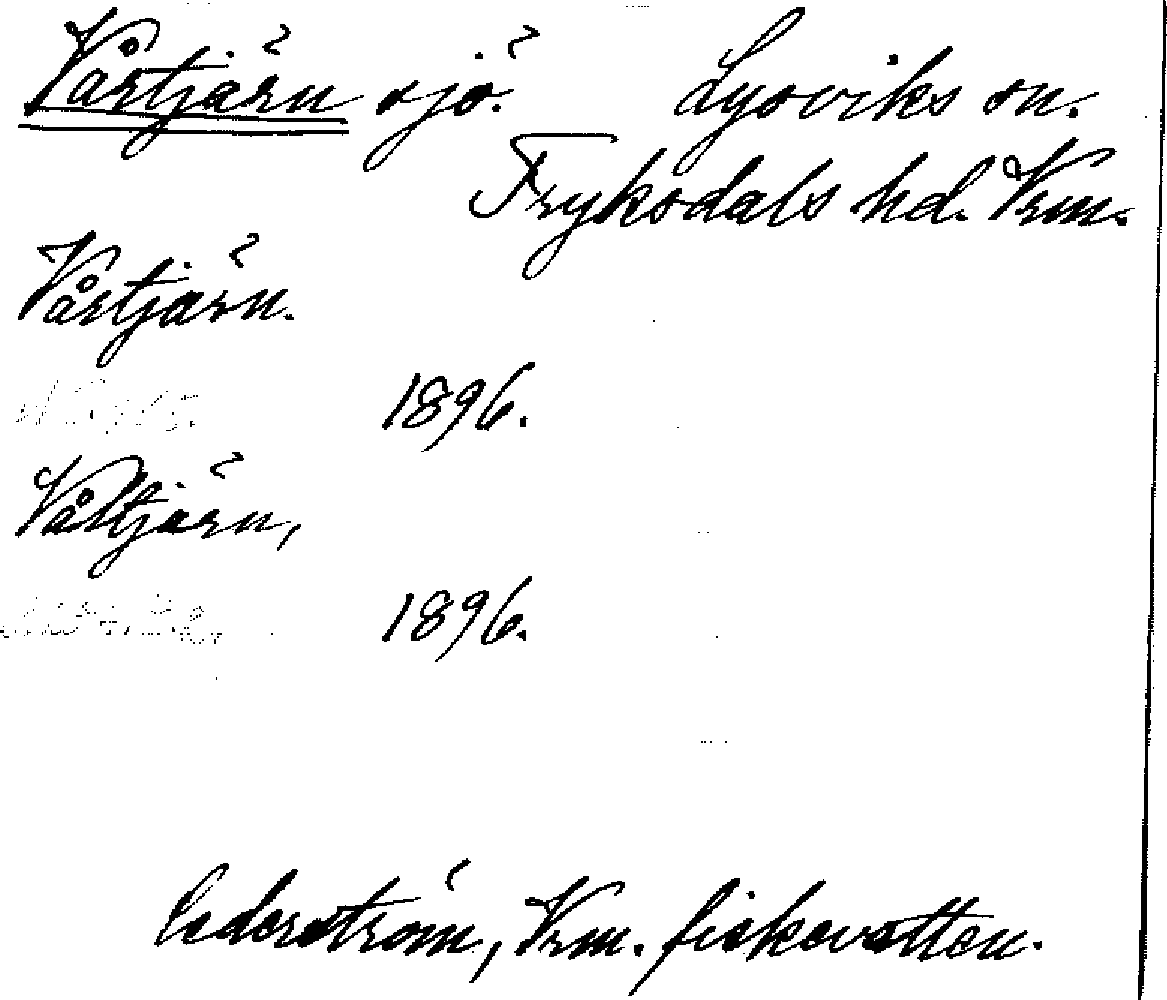 Vårtjärn sjö. Lysviks sn.
Fryksdals hd. Vrm.
Vårtjärn.
1896.
Våltjärn,
1896.
Cederström, Vrm. fiskevatten.